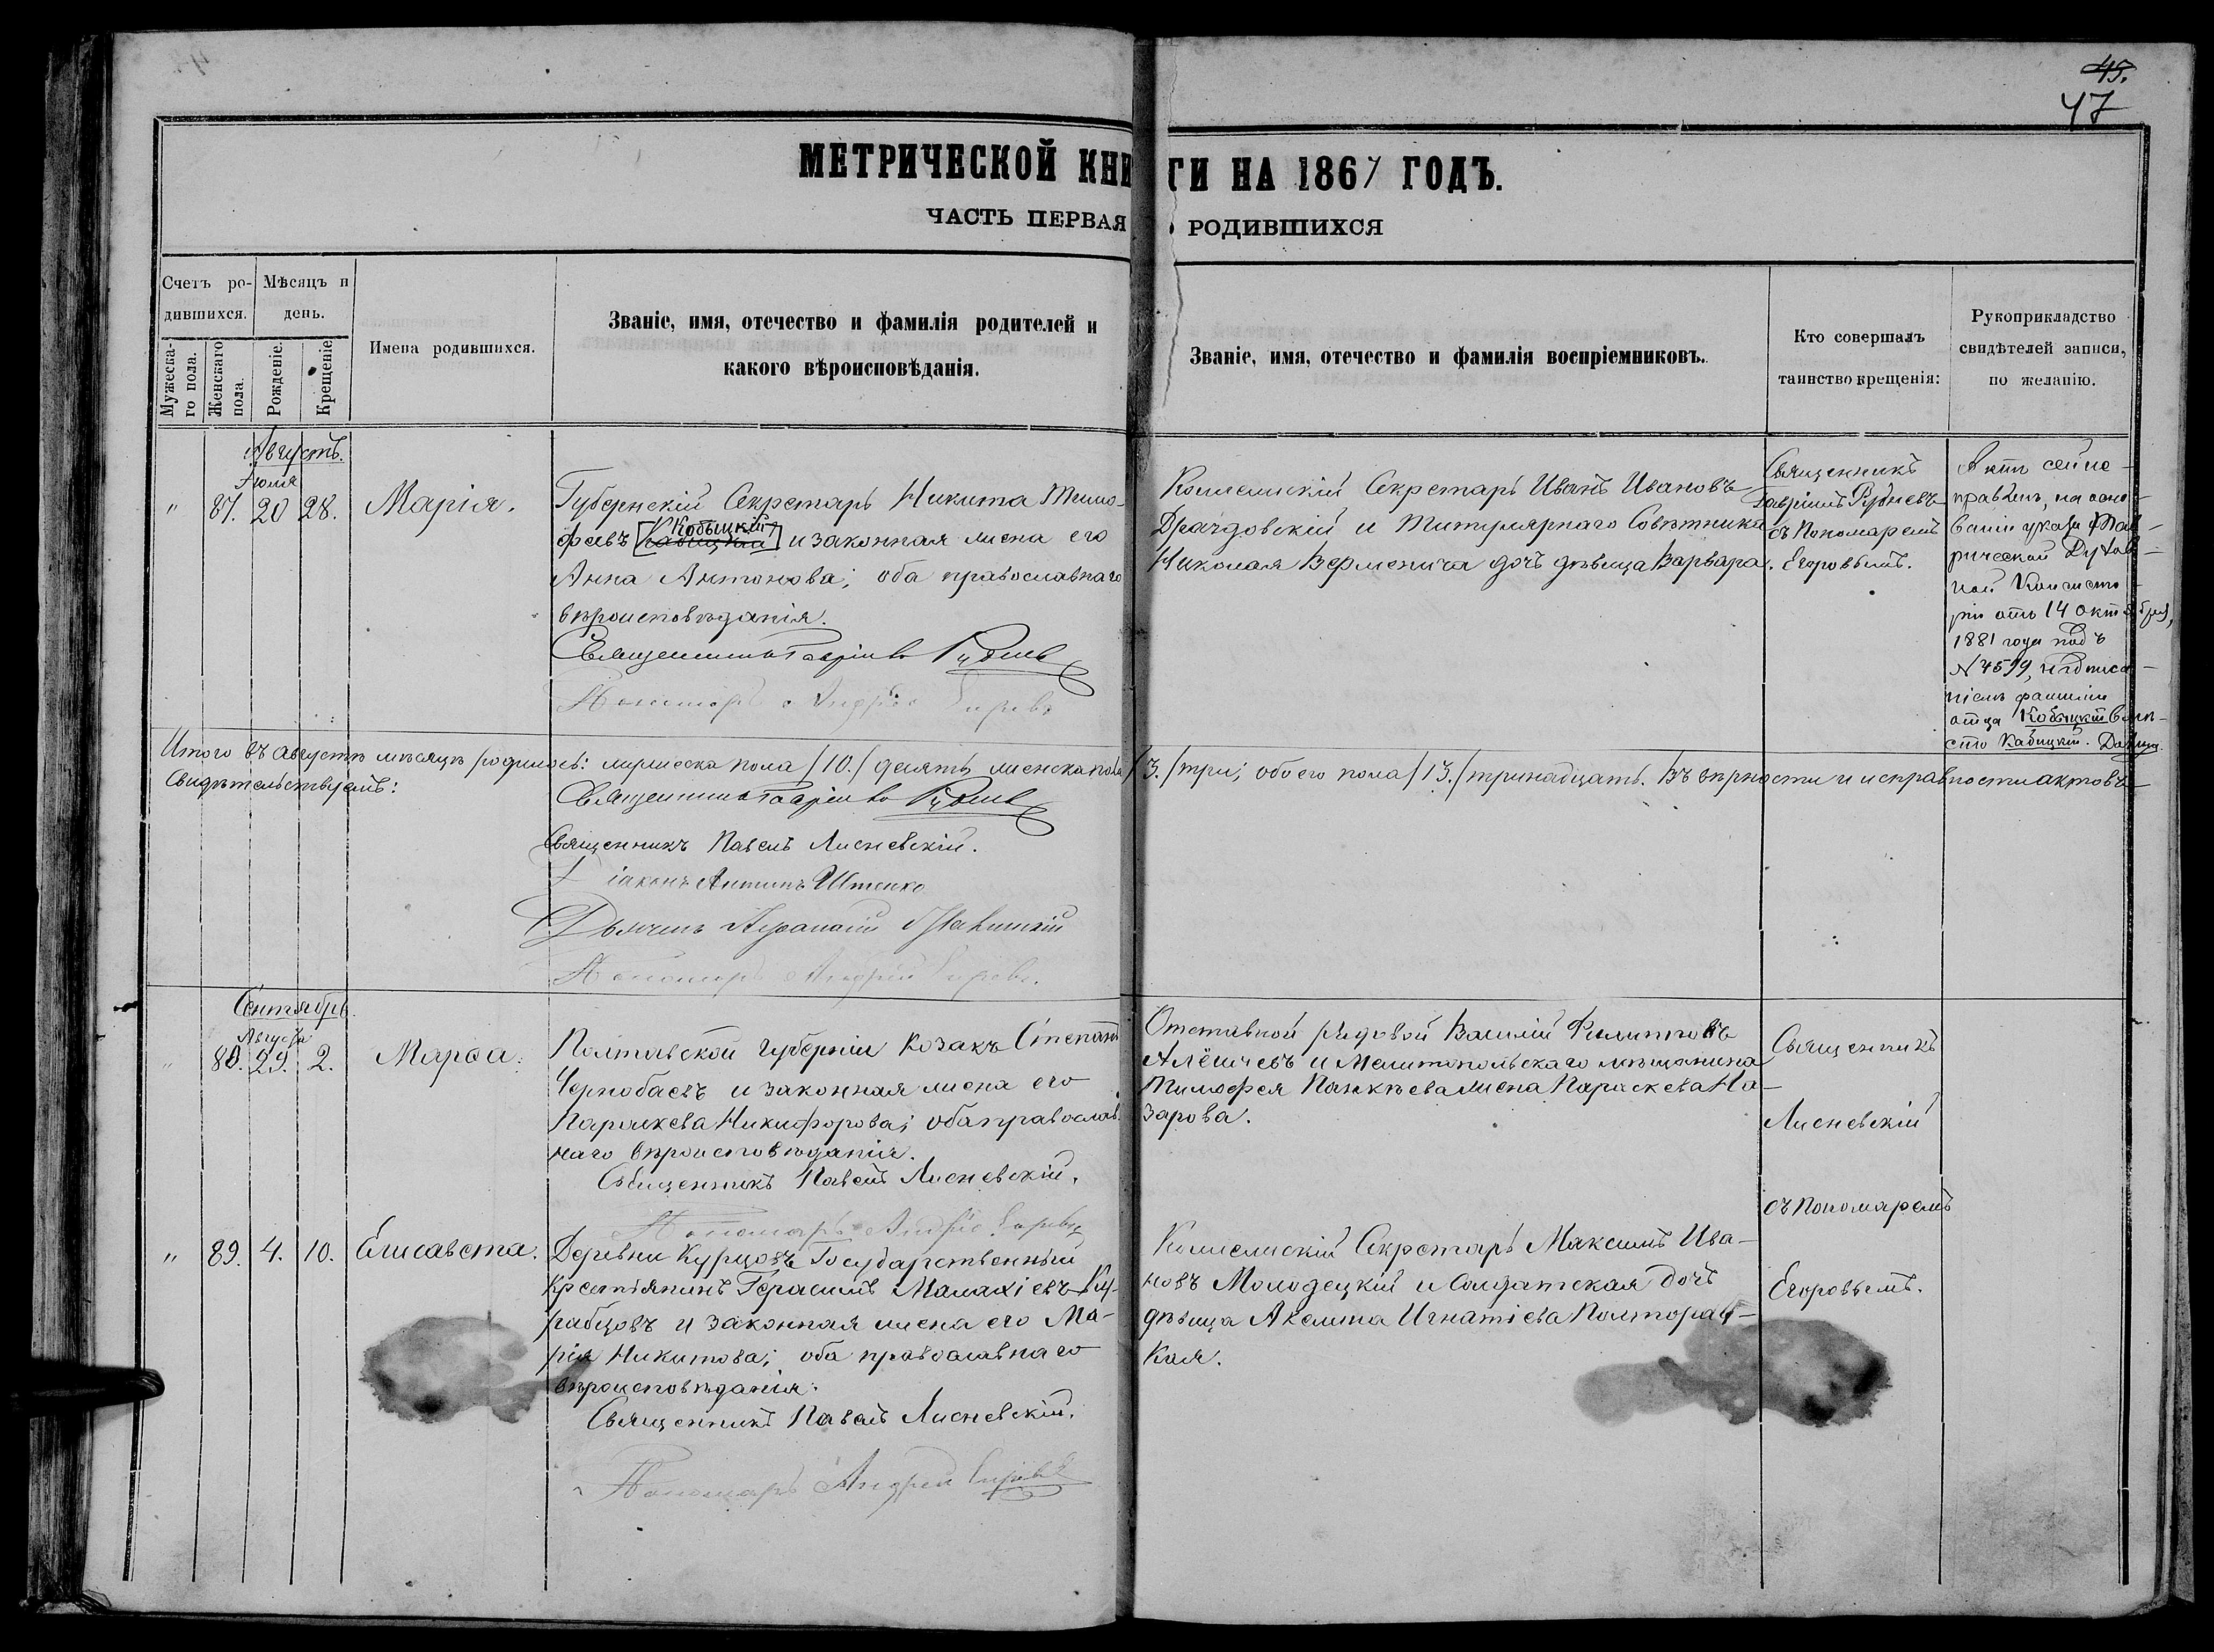 45.
47
МЕТРИЧЕСКОЙ КНИГИ НА 1867 ГОДЪ.
ЧАСТЬ ПЕРВАЯ О РОДИВШИХСЯ
Счетъ ро-
дившихся.
Мужеска-
го пола.
Женскаго
пола.
Мѣсяцъ и
день.
Рожденіе.
Крещеніе.
Имена родившихся.
Званіе, имя, отечество и фамилія родителей и
какого вѣроисповѣданія.
Званіе, имя, отечество и фамилія воспріемниковъ.
Кто совершалъ
таинство крещенія:
Рукоприкладство
свидѣтелей записи,
по желанію.
Августъ.
Іюля
" 87. 20 28. Марія.
Губернскій Секретарь Никита Тимо-
Кобыцкій
феевъ Кабицкій и законная жена его
Анна Антонова; оба православнаго
вѣроисповѣданія.
Священникъ Гавріилъ Руднев
Пономарь Андрей Егоров
Коллежскій Секретарь Иванъ Ивановъ
Дроздовскій и Титулярнаго Совѣтника
Николая Верменича дочь дѣвица Варвара.
Священникъ
Гавріилъ Рудневъ
съ Пономаремъ
Егоровымъ.
Актъ сей ис-
правленъ, на осно-
ваніи указа Тав-
рической Духов-
ной Консисто-
ріи отъ 14 октября,
1881 года подъ
N 4599, надписа-
ніемъ фамиліи
отца Кобыцкій вмѣ-
сто Кабицкій.
Итого въ августѣ мѣсяцѣ родилось: мужеска пола /10./ десять женска пола /3./ три; обоего пола /13./ тринадцать. Въ вѣрности и исправности актовъ
свидѣтельствуемъ:
Священникъ Гавріилъ Руднев
Священникъ Павелъ Лисневскій.
Діаконъ Антипъ Штенко
Дьячекъ
Пономарь Андрей Егоров.
Сентябрь.
Августа
" 88. 29. 2. Марѳа.
Полтавской губерніи козакъ Степанъ
Чернобаевъ и законная жена его
Параскева Никифорова; оба православ-
наго вѣроисповѣданія.
Священникъ Павелъ Лисневскій.
Пономарь Андрей Егоров
Отставной рядовой Василій Филиповъ
Алёшчевъ и Мелитопольскаго мѣщанина
Тимофея Панкѣева жена Параскева На-
зарова.
Священникъ
Лисневскій
съ Пономаремъ
Егоровымъ.
" 89. 4. 10. Елисавета.
Деревни Курцовъ Государственный
крестьянинъ Герасимъ Малахіевъ Ку-
рабцовъ и законная жена его Ма-
рія Никитова; оба православнаго
вѣроисповѣданія.
Священникъ Павелъ Лисневскій.
Пономарь Андрей Егоров
Коллежскій Секретарь Максимъ Ива-
новъ Молодецкій и Солдатская дочь
дѣвица Акелина Игнатіева Полторац-
кая.